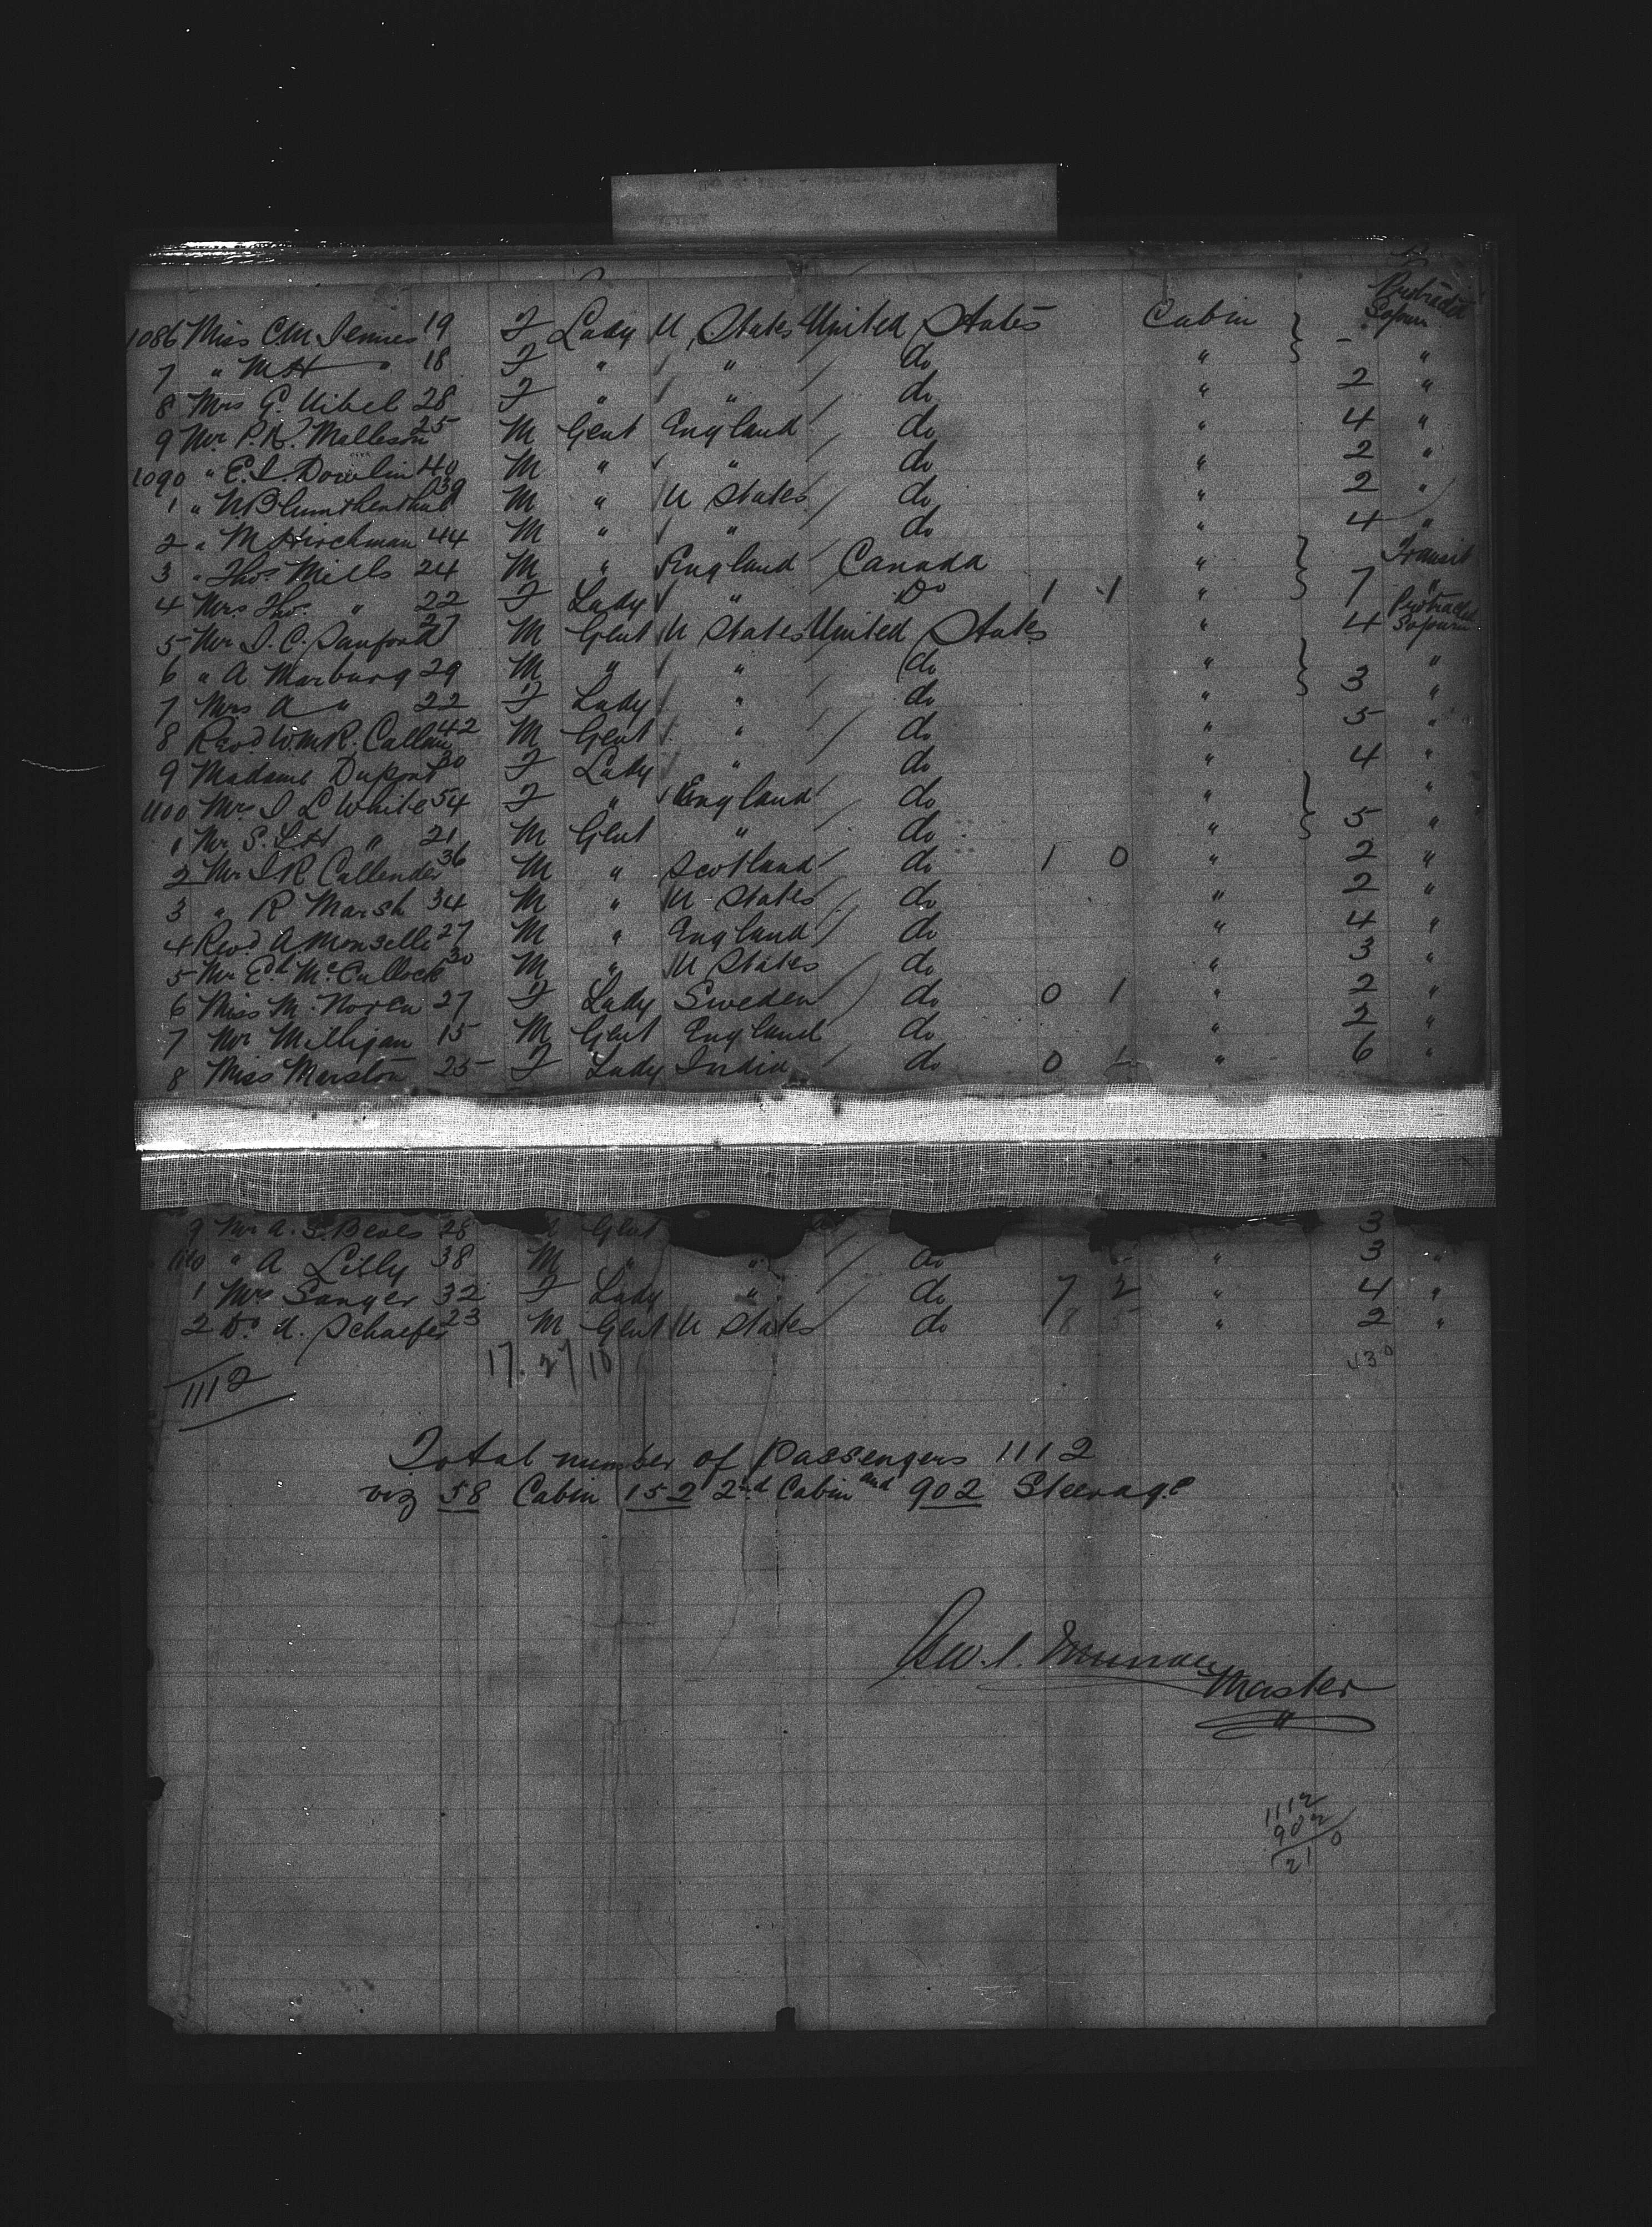 Protracted
1086 Miss C.M. 19 F Lady U States United States Cabin } - Sojourn
7 " M H " 18 F " " do " "
8 Mrs G. Uibel 28 F " " do " 2 "
9 Mr P.K. Malleson 25 M Gent England do " 4 "
1090 " E.I. Dowlin 40 M " " do " 2 "
1 " 39 M " U States do " 2 "
2 " M Hirchman 44 M " " do " 4 "
3 " Thos Mills 24 M " England Canada " } Transit
4 Mrs Thos " 22 F Lady " Do 1 1 " 7 "
5 Mr I.C. Sanford 27 M Gent U States United States " 4 Protracted Sojourn
6 " A Marburg 29 M " " do " } "
7 Mrs A " 22 F Lady " do " 3 "
8 Revd W.M.R. Callan 42 M Gent " do " 5 "
9 Madame Dupont 30 F Lady " do " 4 "
1100 Mrs I L White 54 F " England do " } "
1 Mr S. L H " 21 M Gent " do " 5 "
2 Mr I R Callender 36 M " Scotland do 1 0 " 2 "
3 " R Marsh 34 M " U States do " 2 "
4 Revd A Monselle 27 M " England do " 4 "
5 Mr Ed McCullock 30 M " U States do " 3 "
6 Miss M. Noren 27 F Lady Sweden do 0 1 " 2 "
7 Mr Milligan 15 M Gent England do " 2 "
8 Miss Marston 25 F Lady India do 0 1 " 6 "
9 Mr A. S. Beves 28 Gent 3
1110 " A Lilly 38 M " " do " 3 "
1 Mrs Sanger 32 F Lady " do 7 2 " 4 "
2 Dr A. Schaefer 23 M Gent U States do 8 5 " 2 "
17. 27 10 130
1112
Total number of Passengers 1112
viz 58 Cabin 152 2nd Cabin and 902 Steerage
Master
1112
902
210